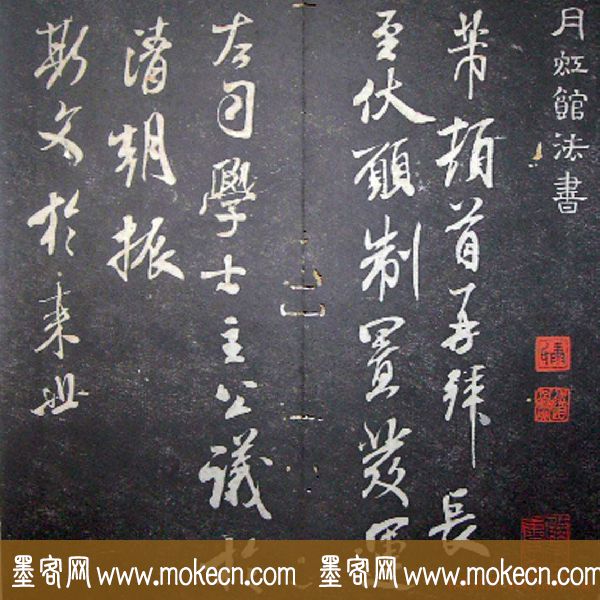 月虹館法書
芾頓首再拜長
至伏願制置發運
右司學士主公議於
清朝振
斯文於来世
墨客网 www.mokecn.com 墨客网 www.mokecn.com